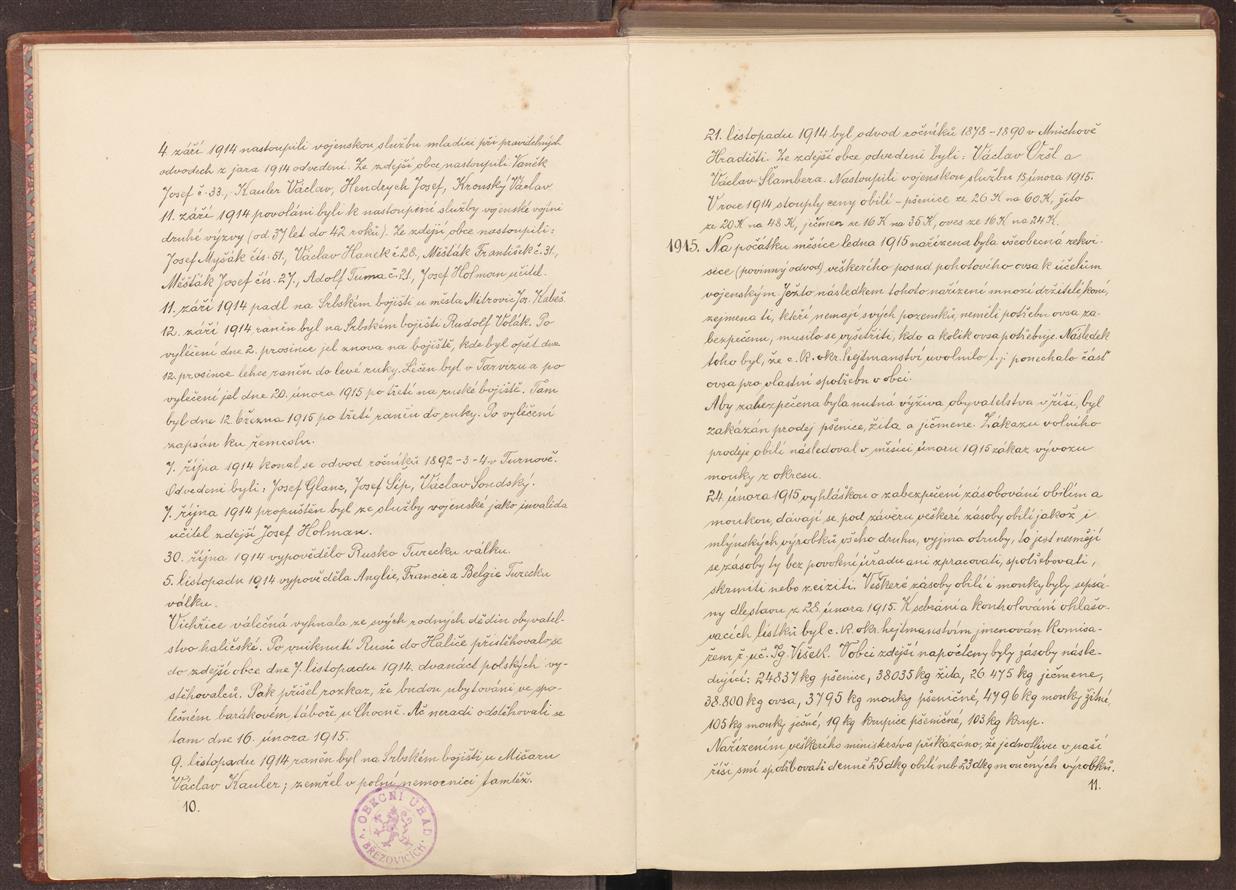 4 září 1914 nastoupili vojenskou službu mladíci při pravidelných
odvodech z jara 1914 odvedení. Ze zdejší obce nastoupili: Vaněk
Josef č. 33., Kauler Václav, Hendrych Josef, Kronský Václav
11. září 1914 povoláni byli k nastoupení služby vojenské vojíni
druhé výzvy (od 37 let do 42 roků). Ze zdejší obce nastoupili:
Josef Myšák čís. 51., Václav Hanek č 28., Měšťák František č. 31.,
Měšťák Josef čís. 27., Adolf Tůma č. 21, Josef Holman učitel.
11. září 1914 padl na Srbském bojišti u města Mitrovic Jos. Kabeš.
12. září 1914 raněn byl na Srbském bojišti Rudolf Volák. Po
vyléčení dne 2. prosince jel znova na bojiště, kde byl opět dne
12. prosince lehce raněn do levé ruky. Léčen byl v Tarvizu a po
vyléčení jel dne 20. února 1915 po třetí na ruské bojiště. Tam
byl dne 12. března 1915 po třetí raněn do ruky. Po vyléčení
zapsán ku řemeslu.
7. října 1914 konal se odvod ročníků 1892-3-4 v Turnově.
Odvedeni byli: Josef Glanc, Josef Síp, Václav Sondský.
7. října 1914 propuštěn byl ze služby vojenské jako invalida
učitel zdejší Josef Holman.
30. října 1914 vypovědělo Rusko Turecku válku.
5. listopadu 1914 vypověděla Anglie, Francie a Belgie Turecku
válku.
Vichřice válečná vyhnala ze svých rodných dědin obyvatel-
stvo haličské. Po vniknutí Rusů do Haliče přistěhovalo se
do zdejší obce dne 7. listopadu 1914 dvanáct polských vy-
stěhovalců. Pak přišel rozkaz, že budou ubytováni ve spo-
lečném barákovém táboře u Chocně. Ač neradi odstěhovali se
tam dne 16. února 1915.
9. listopadu 1914 raněn byl na Srbském bojišti u Mišaru
Václav Kauler; zemřel v polní nemocnici tamtéž.
10.
OBECNÍ ÚŘAD
v BŘEZOVICÍCH
21. listopadu 1914 byl odvod ročníků 1878-1890 v Mnichově
Hradišti. Ze zdejší obce odvedeni byli: Václav Oršl a
Václav Šlambera. Nastoupili vojenskou službu 15. února 1915.
V roce 1914 stouply ceny obilí - pšenice ze 26 K na 60 K, žito
ze 20 K na 48 K, ječmen ze 16 K na 35 K, oves ze 16 K na 24 K.
1915. Na počátku měsíce ledna 1915 nařízena byla všeobecná rekvi-
sice (povinný odvod) veškerého posud pohotového ovsa k účelům
vojenským. Ježto následkem tohoto nařízení mnozí držitelé koní,
zejmena ti, kteří nemají svých pozemků, neměli potřebu ovsa za-
bezpečenu, musilo se vyšetřiti, kdo a kolik ovsa potřebuje. Následek
toho byl, že c. k. okr. hejtmanství uvolnilo t. j. ponechalo část
ovsa pro vlastní spotřebu v obci.
Aby zabezpečena byla nutná výživa obyvatelstva v říši, byl
zakázán prodej pšenice, žita a ječmene. Zákazu volného
prodeje obilí následoval v měsíci únoru 1915 zákaz vývozu
mouky z okresu.
24. února 1915 vyhláškou o zabezpečení zásobování obilím a
moukou, dávají se pod závěru veškeré zásoby obilí jakož i
mlýnských výrobků všeho druhu, vyjma otruby, to jest nesmějí
se zásoby ty bez povolení úřadu ani zpracovati, spotřebovati,
zkrmiti nebo zciziti. Veškeré zásoby obilí i mouky byly sepsá-
ny dle stavu z 28. února 1915. K sebrání a kontrolování ohlašo-
vacích lístků byl c. k. okr. hejtmanstvím jmenován komisa-
řem ř. uč. Ig. Všetk. V obci zdejší napočteny byly zásoby násle-
dující: 24837 kg pšenice, 38035 kg žita, 26 475 kg ječmene,
38.800 kg ovsa, 3795 kg mouky pšeničné, 4796 kg mouky žitné,
105 kg mouky ječné, 19 kg krupice pšeničné, 103 kg krup.
Nařízením veškerého ministerstva přikázáno, že jednotlivec v naší
říši smí spotřebovati denně 25 dkg obilí neb 23 dkg moučných výrobků.
11.